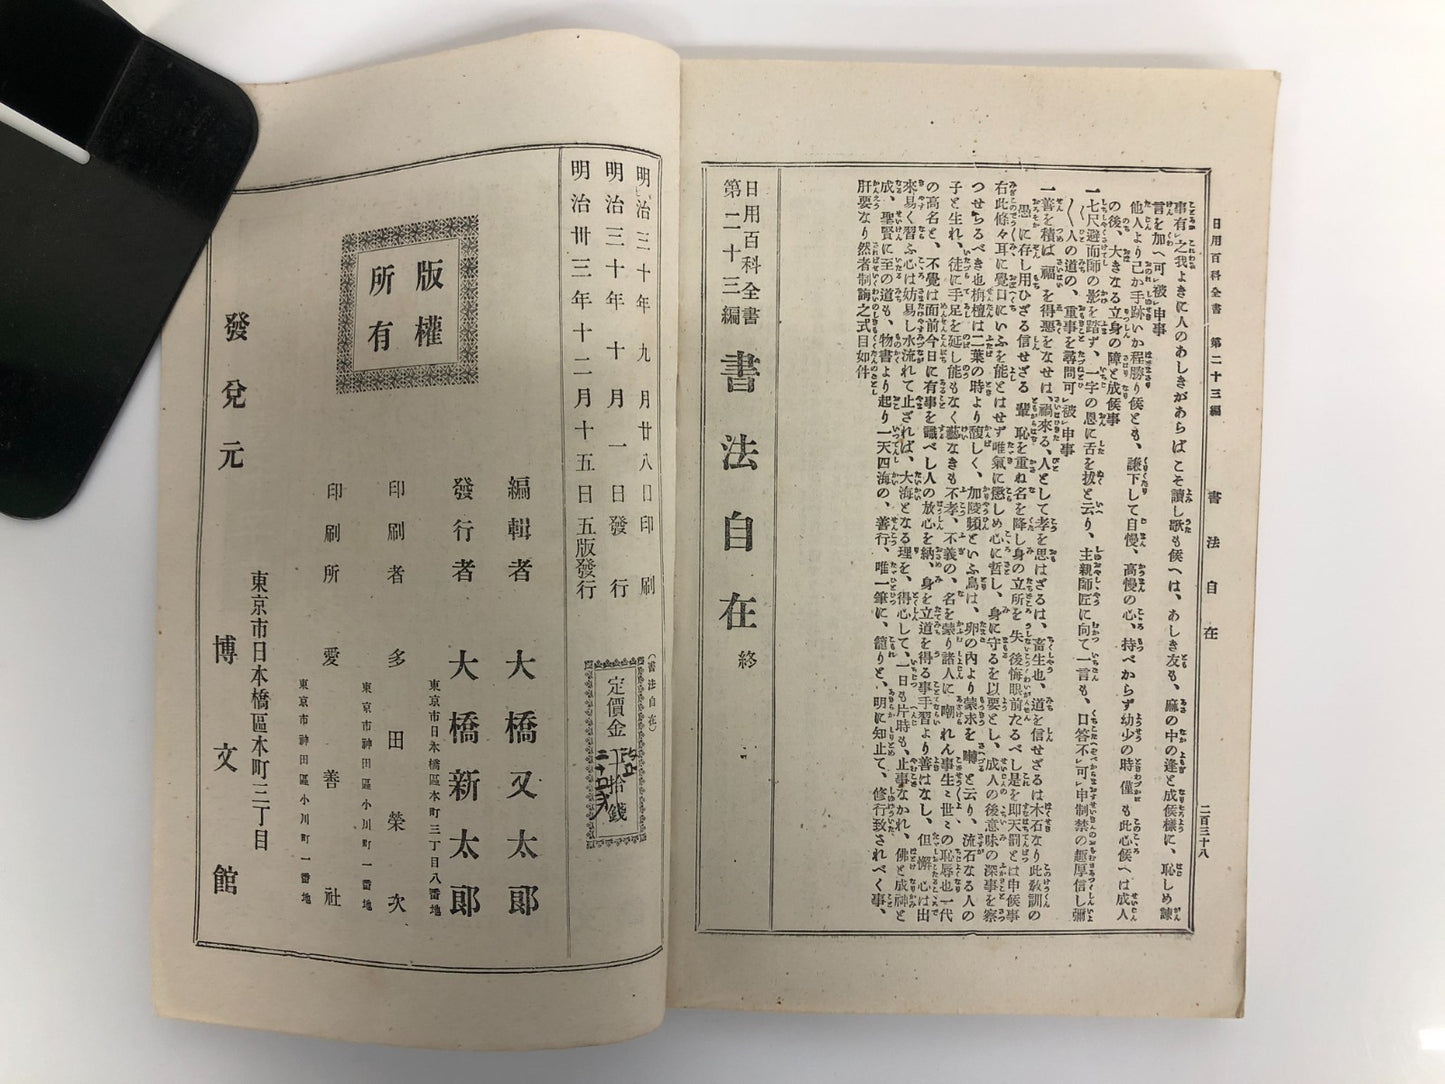 日用百科全書 第二十三編 書法自在 二百三十八
事有レ之我よきに人のあしきがあらばこそ讀し歌も候へは、あしき友も、麻の中の逢と成候樣に、恥しめ諫
言を加へ可レ被レ申事
他人より己か手跡いか程勝り候とも、謙下して自慢、高慢の心、持べからず幼少の時、僅も此心候へは成人
の後、大きなる立身の障と成候事
一七尺避而師の影を踏ず、一字の恩に舌を拔と云り、主親師匠に向て一言も、口答不レ可レ申制禁の趣厚信し彌
〳〵人の道の、重事を尋問可レ被レ申事
一善を積ば福を得悪をなせは、禍來る、人として孝を思はざるは、畜生也、道を信せざるは木石なり此敎訓の
愚に存し用ひざる信せざる輩恥を重ね名を降し身の立所を失後悔眼前たるべし是を即天罰とは申候事
右此條々耳に覺口にいふを能とはせず唯氣に懲しめ心に哲し、身に守るを以要とし、成人の後意味の深事を察
つせらるべき也栴檀は二葉の時より馥しく、加陵頻といふ鳥は、卵の內より蒙求を囀と云り、流石なる人の
子と生れ、徒に手足を延し能もなく藝なきも不孝、不義の、名を蒙り諸人に嘲れん事生ミ世ミの恥辱也一代
の高名と、不覺は面前今日に有事を讖べし人の放心を納、身を立道を得る事手習より善はなし、但懈心は出
來易く習ふ心は妨易し水流れて止ざれば、大海となる理を、得心して、一日も片時も、止事なかれ、佛と成神と
成、聖賢に至の道も、物書より起り一天四海の、善行、唯一筆に、籠りと、明に知止て、修行致されべく事、
肝要なり然者制詢之式目如件
日用百科全書
第二十三編
書法自在 終
明治三十年九月廿八日印刷
明治三十年十月一日發行
明治卅三年十二月十五日五版發行
(書法自在)
定價金
拾錢
版權
所有
編輯者 大橋又太郎
東京市日本橋區本町三丁目八番地
發行者 大橋新太郎
東京市神田區小川町一番地
印刷者 多田榮次
東京市神田區小川町一番地
印刷所 愛善社
東京市日本橋區本町三丁目
發兌元 博文館